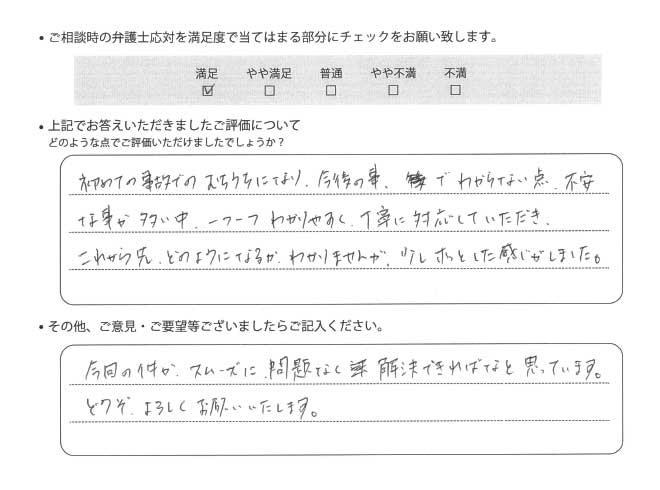 • ご相談時の弁護士応対を満足度で当てはまる部分にチェックをお願い致します。
満足 やや満足 普通 やや不満 不満
☑ □ □ □ □
• 上記でお答えいただきましたご評価について
どのような点でご評価いただけましたでしょうか?
初めての事故でのむちうちになり、今後の事、でわからない点、不安
な事が多い中、一つ一つわかりやすく、丁寧に対応していただき、
これから先、どのようになるか、わかりませんが、少しホッとした感じがしました。
• その他、ご意見・ご要望等ございましたらご記入ください。
今回の件が、スムーズに、問題なく解決できればなと思っています。
どうぞ、よろしくお願いいたします。